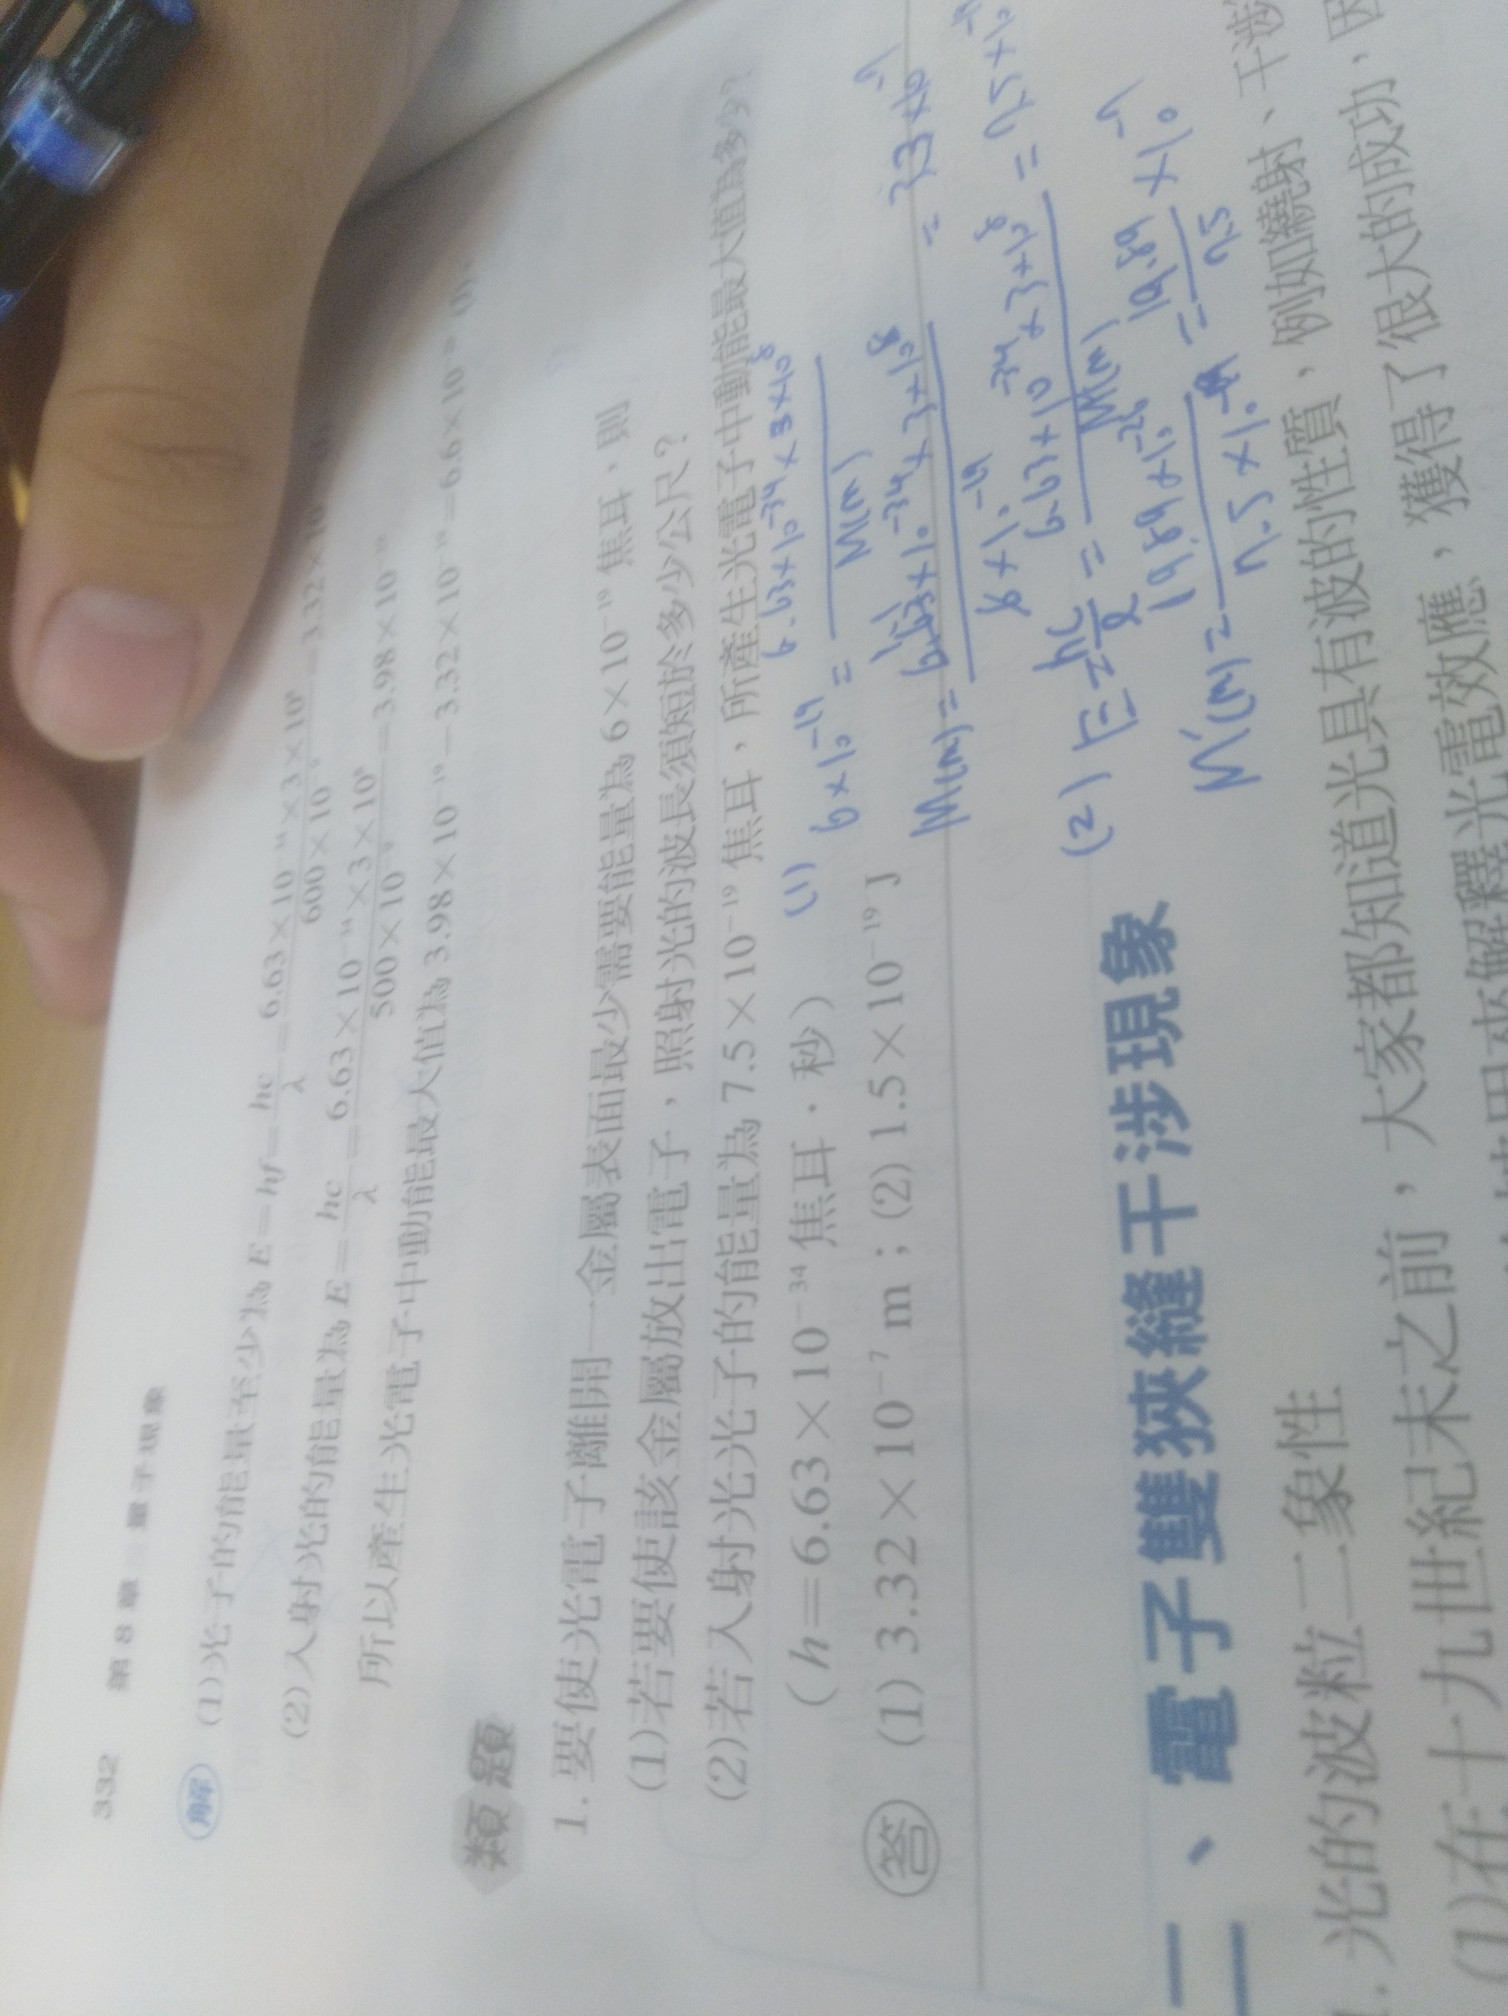 332 第 8 章 量子現象
解 (1)光子的能量至少為 E=hf=hc/λ=6.63×10⁻³⁴×3×10⁸/600×10⁻⁹=3.32×10
(2)入射光的能量為 E=hc/λ=6.63×10⁻³⁴×3×10⁸/500×10⁻⁹=3.98×10⁻¹⁹
所以產生光電子中動能最大值為 3.98×10⁻¹⁹−3.32×10⁻¹⁹=6.6×10⁻²⁰ (J)
類題
1.要使光電子離開一金屬表面最少需要能量為 6×10⁻¹⁹ 焦耳,則
(1)若要使該金屬放出電子,照射光的波長須短於多少公尺?
(2)若入射光光子的能量為 7.5×10⁻¹⁹ 焦耳,所產生光電子中動能最大值為多少?
(h=6.63×10⁻³⁴ 焦耳·秒)
答 (1) 3.32×10⁻⁷ m;(2) 1.5×10⁻¹⁹ J
(1) 6×10⁻¹⁹ = 6.63×10⁻³⁴×3×10⁸/M(m)
(2) E=hc/λ= 6.63×10⁻³⁴×3×10⁸/M(m) = 7.5×10⁻¹⁹
二、電子雙狹縫干涉現象
光的波粒二象性
(1)在十九世紀末之前,大家都知道光具有波的性質,例如繞射、干涉
解釋光電效應,獲得了很大的成功,因